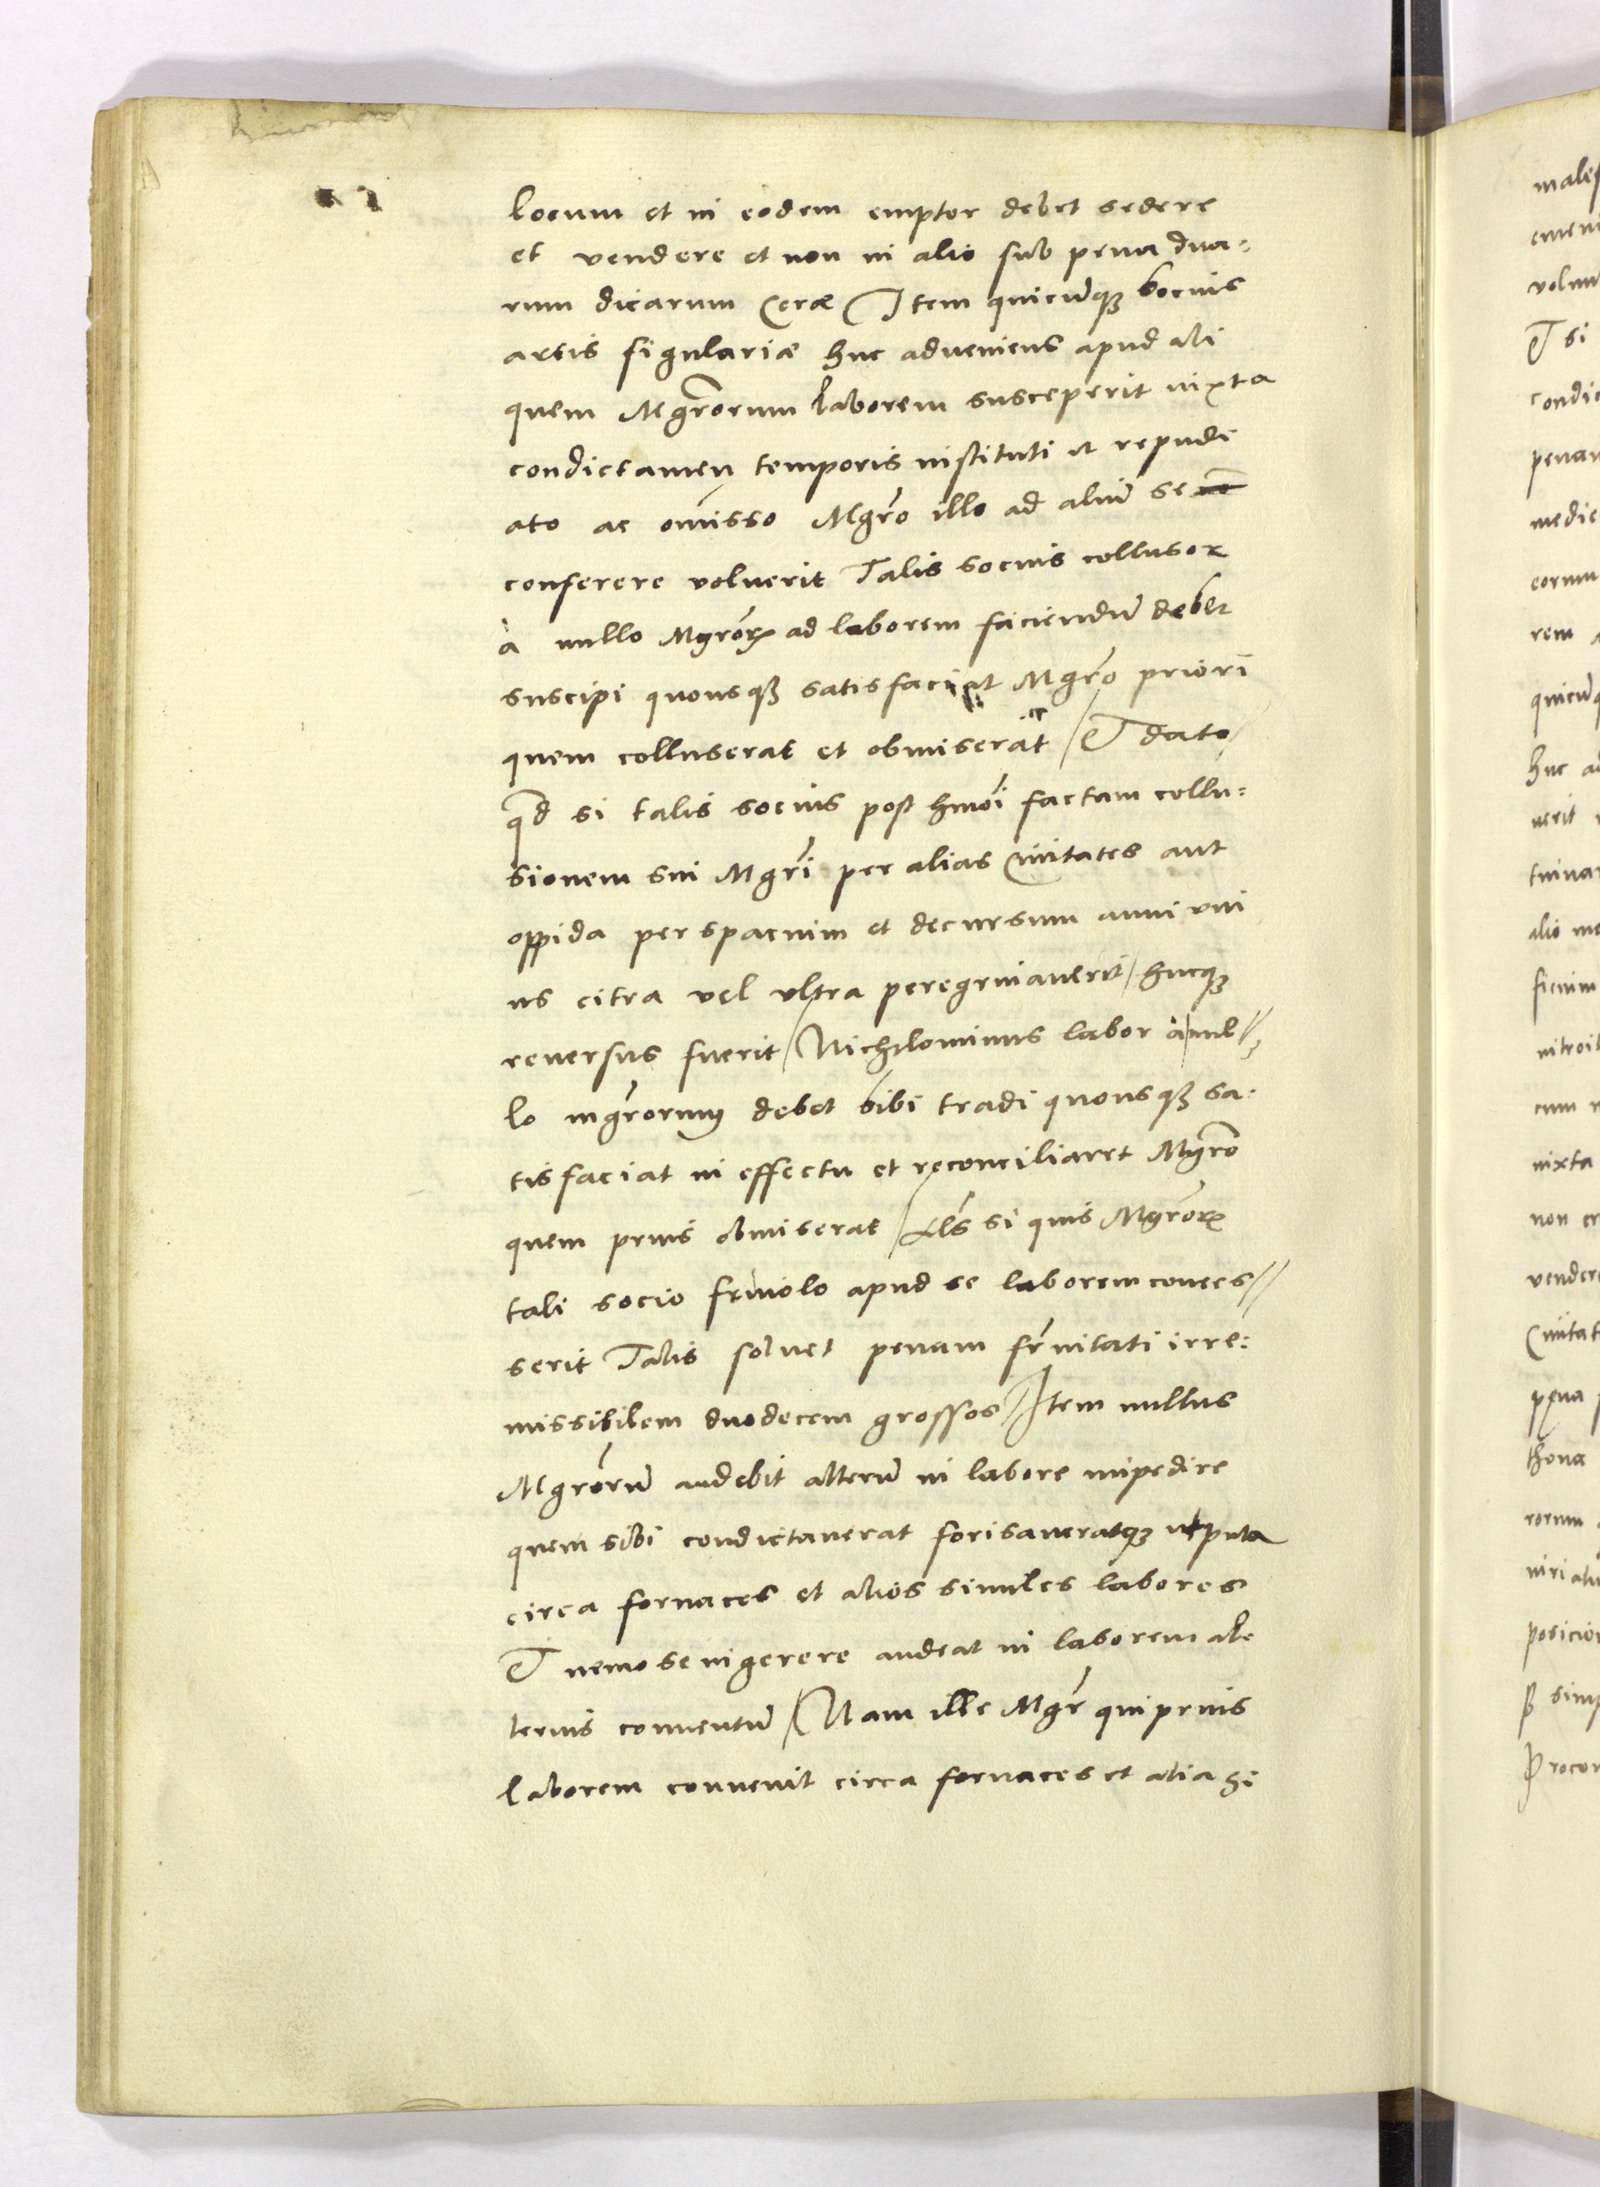 locum et in eodem emptor debet sedere
et vendere et non in alio sub pena dua-
rum dicarum Cerae Item quicunq3 socius
artis figulariae huc adveniens apud ali
quem Mgrorum laborem susceperit iuxta
condictamen temporis instituti et repudi
ato ac omisso Mgro illo ad aliu se
conferere voluerit Talis socius collusor
a nullo Mgror ad laborem faciendu debet
suscipi quousq3 satisfaciat Mgro priori
quem colluserat et obmiserat Et dato
qd si talis socius post hmoi factam collu:
sionem sui Mgri per alias Civitates aut
oppida per spacium et decursum anni uni
us citra vel ultra peregrinaverit hucq3
reversus fuerit Nichilominus labor a nul
lo mgrorum debet sibi tradi quousq3 sa:
tisfaciat in effectu et reconciliaret Mgro
quem prius obmiserat Als si quis Mgror
tali socio frivolo apud se laborem conces
serit Talis solvet penam frnitati irre:
missibilem duodecem grossos Item nullus
Mgroru audebit alteru in labore impedire
quem sibi condictaverat forisaveratq3 utputa
circa fornaces et alios similes labores
Et nemo se ingerere audeat in laborem al
terius conventu Nam ille Mgr qui prius
laborem convenit circa fornaces et alia si
volun
Et si
condic
penam
medie
eorum
rem
quicuq
huc ad
alio
cum
iuxta
non
vendere
Civitat
pena
rorum
posicion
simp